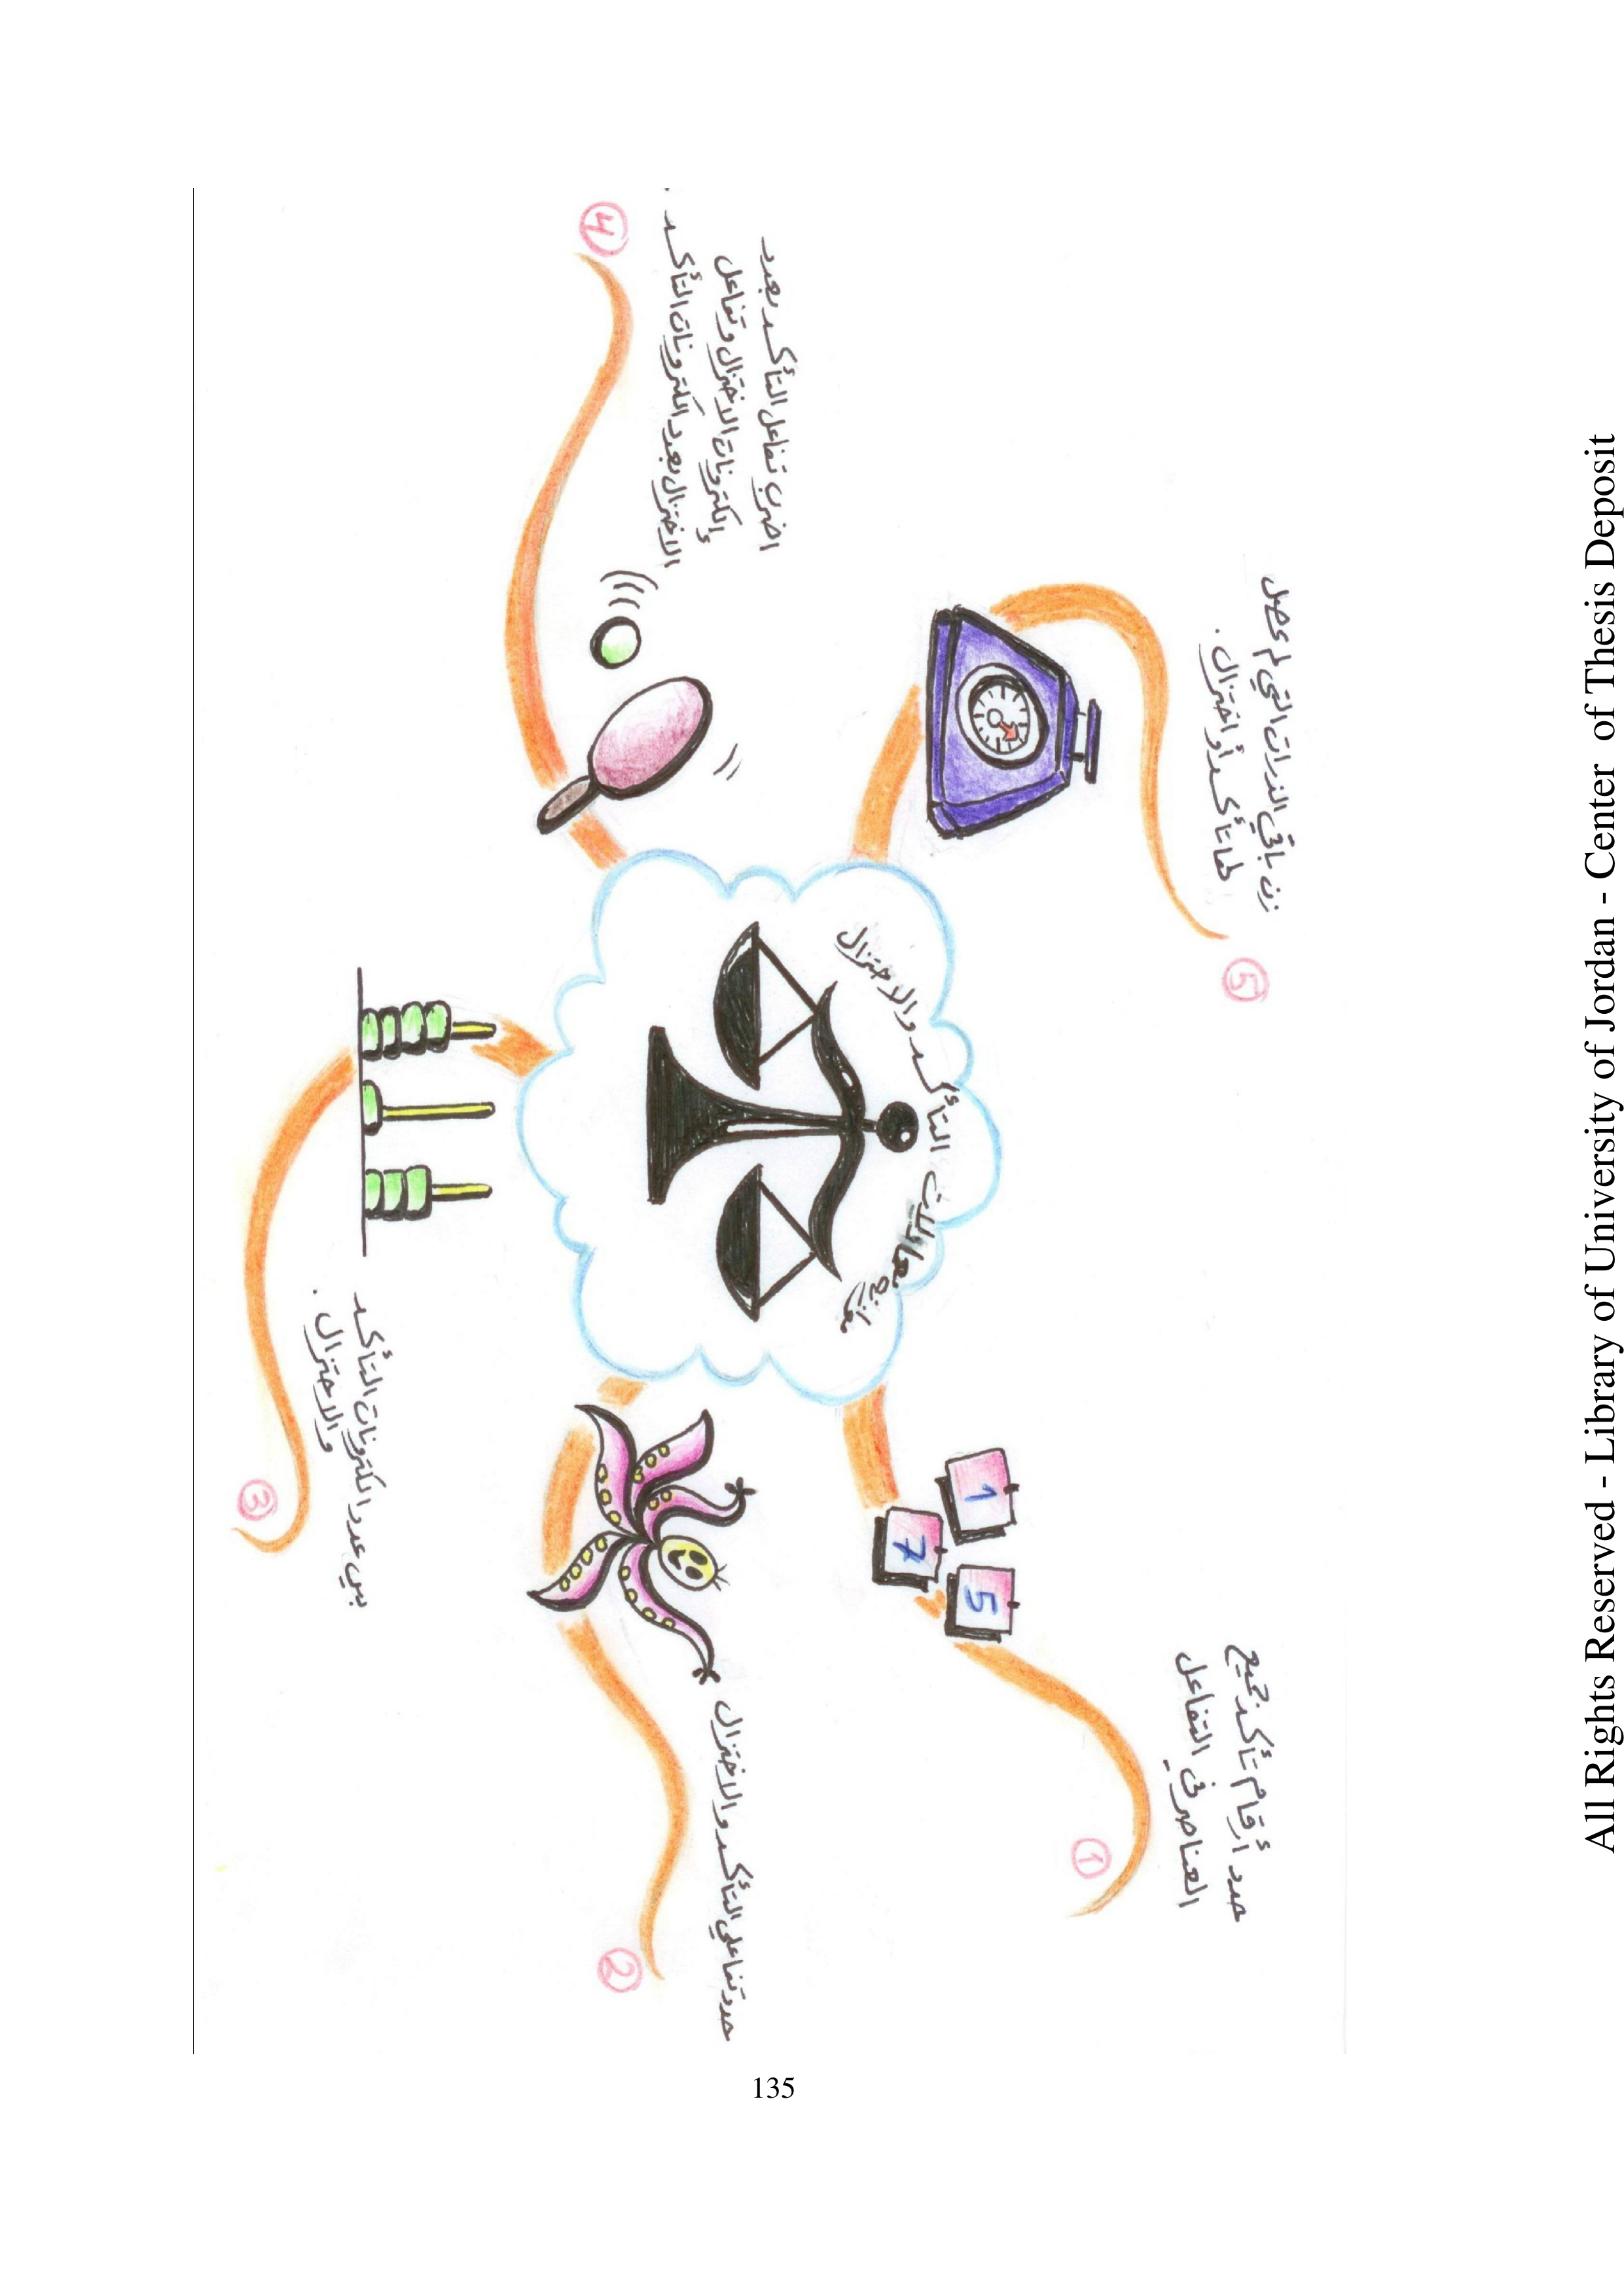 موازنة معادلات التأكسد والاختزال
1
7
5
حدد أرقام تأكسد جميع
العناصر في التفاعل
1
حدد تفاعلي التأكسد والاختزال
2
بين عدد الكترونات التأكسد
والاختزال .
3
اضرب تفاعل التأكسد بعدد
إلكترونات الاختزال وتفاعل
الاختزال بعدد الكترونات التأكسد .
4
زن باقي الذرات التي لم يحصل
لها تأكسد أو اختزال .
5
135
All Rights Reserved - Library of University of Jordan - Center of Thesis Deposit